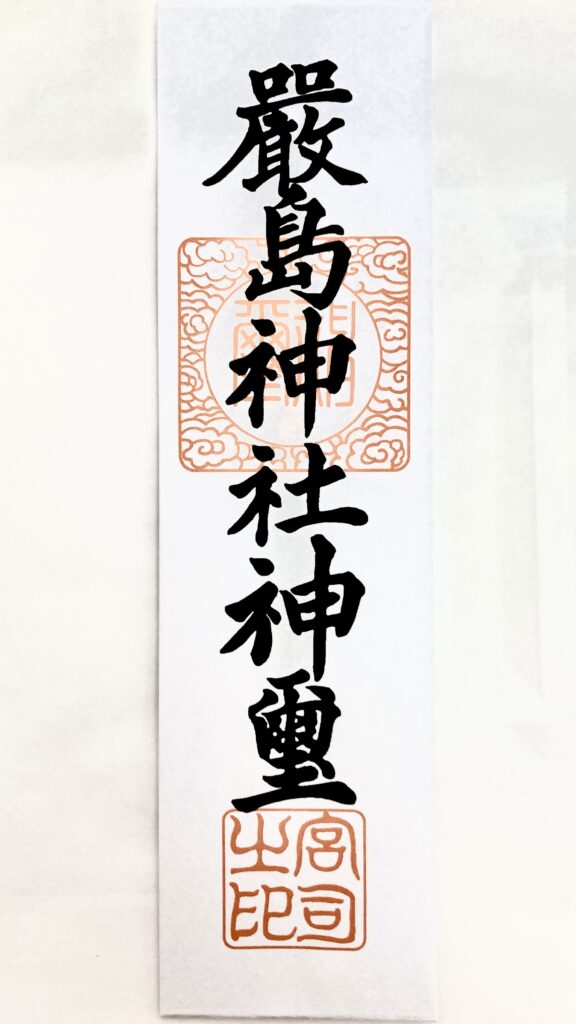 嚴島神社神璽
宮司
之印